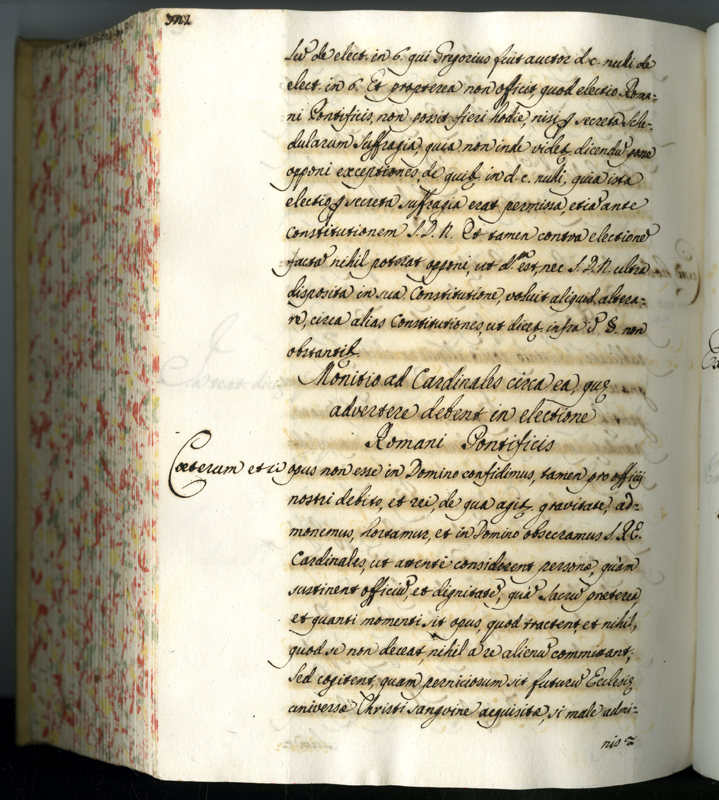 lu͂ de elect. in 6. qui Gregorius fuit auctor d. c. nulli de
elect. in 6. Et propterea non officit, quod electio Roma-
ni Pontificis, non possit fieri hodie, nisi ꝑ secreta sche-
dularum suffragia, quia non inde videt, dicendu͂ posse
opponi exceptiones de quib. in d. c. nulli, quia ista
electio ꝑ secreta suffragia erat permissa, etia͂ ante
Constitutionem S. D. N. Et tamen contra electione͂
facta͂ nihil poterat opponi, ut d.m est, nec S. D. N. ultra
disposita in sua Constitutione, voluit aliquid altera-
re, circa alias Constitutiones, ut dicet. infra §. non
obstantib.
Monitio ad Cardinales circa ea, quę
advertere debent in electione
Romani Pontificis
Cœterum etsi opus non esse in Domino confidimus, tamen pro officij
nostri debito, et rei, de qua agit. gravitate, ad-
monemus, hortamur, et in Domino obsecramus S. R. E.
Cardinales, ut attentè considerent persona͂, quàm
sustinent officiu͂, et dignitate͂, qua͂ sacru͂ preterea,
et quanti momenti sit opus, quod tractent, et nihil,
quod se non deceat, nihil à re alienu͂ committant,
sed cogitent, quam perniciosum sit futuru͂ Ecclesię
universę Christi sanguine acquisitę, si male admi-
nis-